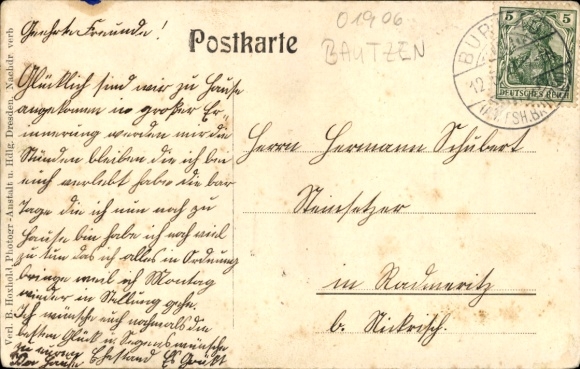 Geehrte Freunde!
Postkarte
01906
BAUTZEN
5 5
DEUTSCHES REICH
BUR
12.
Glücklich sind wir zu Hause
angekommen in großer Er-
innerung werden mir die
Stunden bleiben die ich bei
euch verlebt habe die paar
Tage die ich nun noch zu
Hause bin habe ich noch viel
zu tun das ich alles in Ordnung
bringe weil ich Montag
wieder in Stellung gehe.
Ich wünsche euch nochmals die
besten Glück u. Segenswünsche
zu eurem Ehestand Es Grüßt
Herrn Hermann Schubert
Steinsetzer
in Radmeritz
b. Nickrisch.
Verl. B. Hoxhold, Photogr.-Anstalt u. Hdlg. Dresden, Nachdr. verb